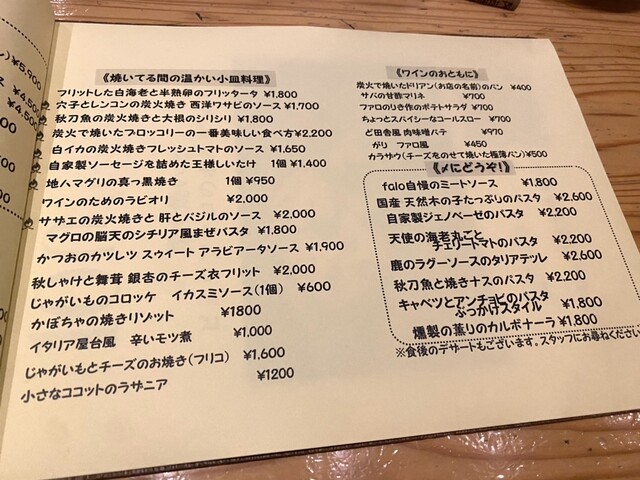 ¥5,900
《焼いてる間の温かい小皿料理》
フリットした白海老と半熟卵のフリッタータ ¥1,800
穴子とレンコンの炭火焼き 西洋ワサビのソース ¥1,700
秋刀魚の炭火焼きと大根のシリシリ ¥1,800
炭火で焼いたブロッコリーの一番美味しい食べ方 ¥2,200
白イカの炭火焼きフレッシュトマトのソース ¥1,650
自家製ソーセージを詰めた王様しいたけ 1個 ¥1,400
地ハマグリの真っ黒焼き 1個 ¥950
ワインのためのラビオリ ¥2,000
サザエの炭火焼きと 肝とバジルのソース ¥2,000
マグロの脳天のシチリア風まぜパスタ ¥1,800
かつおのカツレツ スゥイート アラビアータソース ¥1,900
秋しゃけと舞茸 銀杏のチーズ衣フリット ¥2,000
じゃがいものコロッケ イカスミソース(1個) ¥600
かぼちゃの焼きリゾット ¥1800
イタリア屋台風 辛いモツ煮 ¥1,000
じゃがいもとチーズのお焼き(フリコ) ¥1,600
小さなココットのラザニア ¥1200
《ワインのおともに》
炭火で焼いたドリアン(お店の名前)のパン ¥400
サバの甘酢マリネ ¥700
ファロのりき作のポテトサラダ ¥700
ちょっとスパイシーなコールスロー ¥700
ど田舎風 肉味噌パテ ¥970
がり ファロ風 ¥450
カラサウ(チーズをのせて焼いた極薄パン) ¥500
《〆にどうぞ!》
falo自慢のミートソース ¥1,800
国産 天然木の子たっぷりのパスタ ¥2,600
自家製ジェノベーゼのパスタ ¥2,200
天使の海老丸ごと
チェリートマトのパスタ ¥2,200
鹿のラグーソースのタリアテッレ ¥2,600
秋刀魚と焼きナスのパスタ ¥2,200
キャベツとアンチョビのパスタ
ぶっかけスタイル ¥1,800
燻製の薫りのカルボナーラ ¥1,800
※食後のデザートもございます。スタッフにお尋ねください